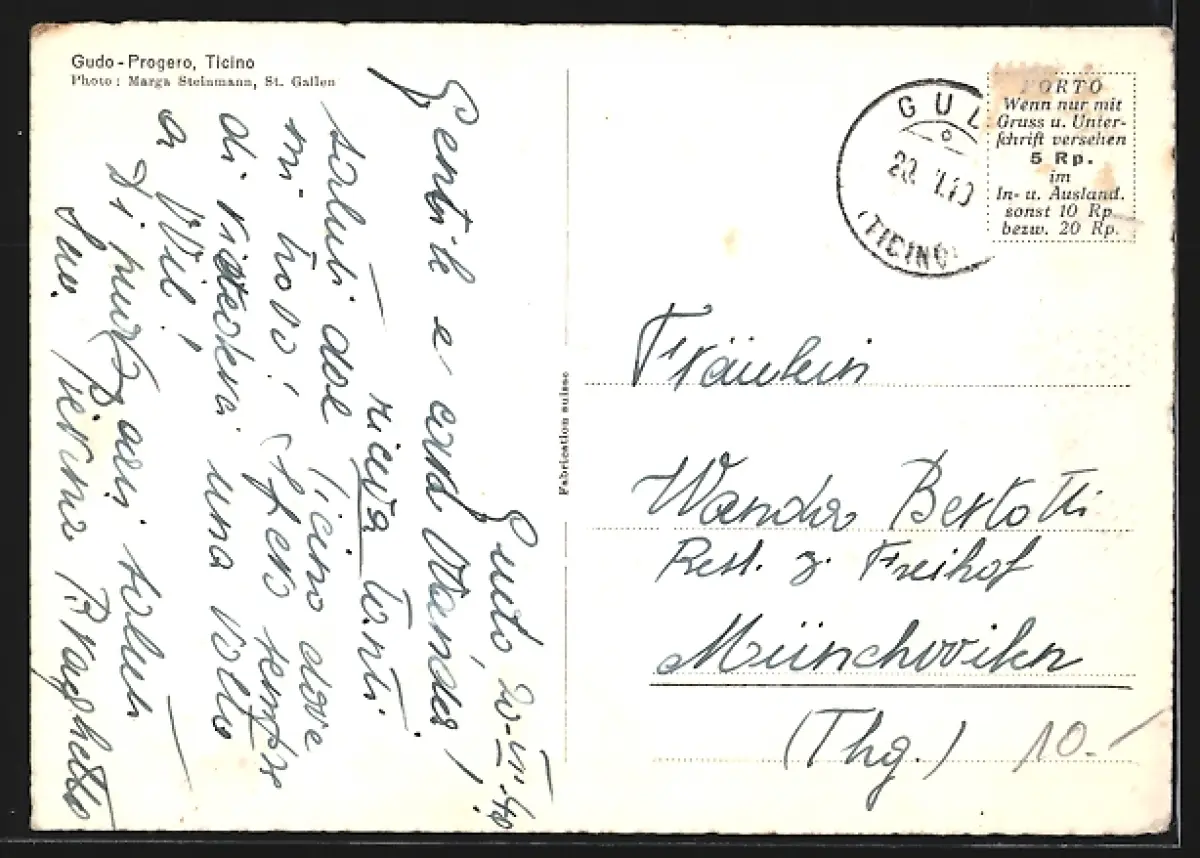 Gudo - Progero, Ticino
Photo: Marga Steinmann, St. Gallen
Gudo 20-VII-49
Gentile e cara Wanda!
riceva tanti
saluti dal Ticino dove
mi trovo! Spero sempre
di rivederci una volta
a Wil!
Di nuovo saluti
Fabrication suisse
GUDO
(TICINO)
PORTO
Wenn nur mit
Gruss u. Unter-
schrift versehen
5 Rp.
im
In- u. Ausland.
sonst 10 Rp.
bezw. 20 Rp.
Fräulein
Wanda Bertotti
Rest. z. Freihof
Münchwilen
(Thg.) 10.-